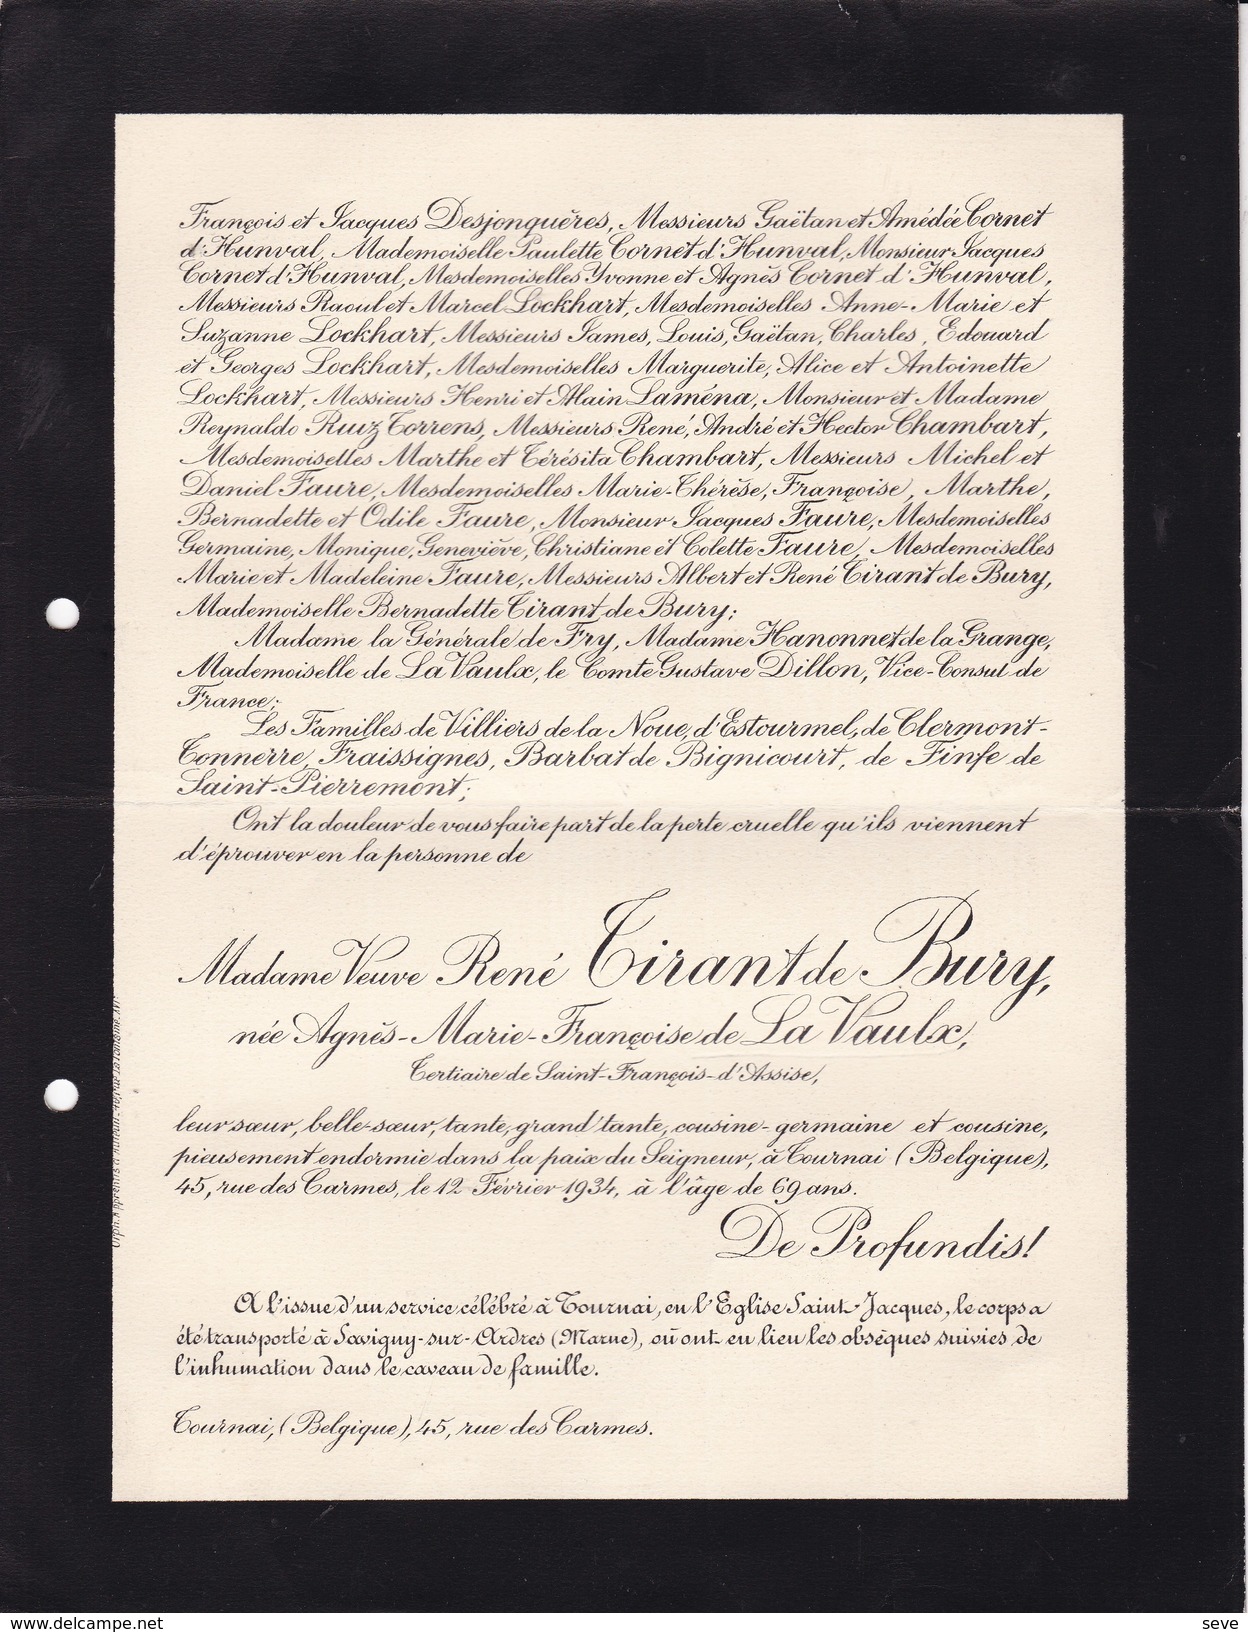 François et Jacques Desjonquères, Messieurs Gaëtan et Amédée Cornet
d'Hunval, Mademoiselle Paulette Cornet d'Hunval, Monsieur Jacques
Cornet d'Hunval, Mesdemoiselles Yvonne et Agnès Cornet d'Hunval,
Messieurs Raoul et Marcel Lockhart, Mesdemoiselles Anne-Marie et
Suzanne Lockhart, Messieurs James, Louis, Gaëtan, Charles, Edouard
et Georges Lockhart, Mesdemoiselles Marguerite, Alice et Antoinette
Lockhart, Messieurs Henri et Alain Laména, Monsieur et Madame
Reynaldo Ruiz Torrens, Messieurs René, André et Hector Chambart,
Mesdemoiselles Marthe et Térésita Chambart, Messieurs Michel et
Daniel Faure, Mesdemoiselles Marie-Thérèse, Françoise, Marthe,
Bernadette et Odile Faure, Monsieur Jacques Faure, Mesdemoiselles
Germaine, Monique, Geneviève, Christiane et Colette Faure, Mesdemoiselles
Marie et Madeleine Faure, Messieurs Albert et René Tirant de Bury,
Mademoiselle Bernadette Tirant de Bury;
Madame la Générale de Fry, Madame Hanonnet de la Grange,
Mademoiselle de La Vaulx, le Comte Gustave Dillon, Vice-Consul de
France;
Les Familles de Villiers de la Noue, d'Estourmel, de Clermont-
Tonnerre, Fraissignes, Barbat de Bignicourt, de Finfe de
Saint-Pierremont;
Ont la douleur de vous faire part de la perte cruelle qu'ils viennent
d'éprouver en la personne de
Madame Veuve René Tirant de Bury,
née Agnès-Marie-Françoise de La Vaulx,
Tertiaire de Saint-François-d'Assise,
leur sœur, belle-sœur, tante, grand'tante, cousine-germaine et cousine,
pieusement endormie dans la paix du Seigneur, à Tournai (Belgique),
45, rue des Carmes, le 12 Février 1934, à l'âge de 69 ans.
De Profundis!
A l'issue d'un service célébré à Tournai, en l'Eglise Saint-Jacques, le corps a
été transporté à Savigny-sur-Ardres (Marne), où ont eu lieu les obsèques suivies de
l'inhumation dans le caveau de famille.
Tournai, (Belgique), 45, rue des Carmes.
www.delcampe.net
seve